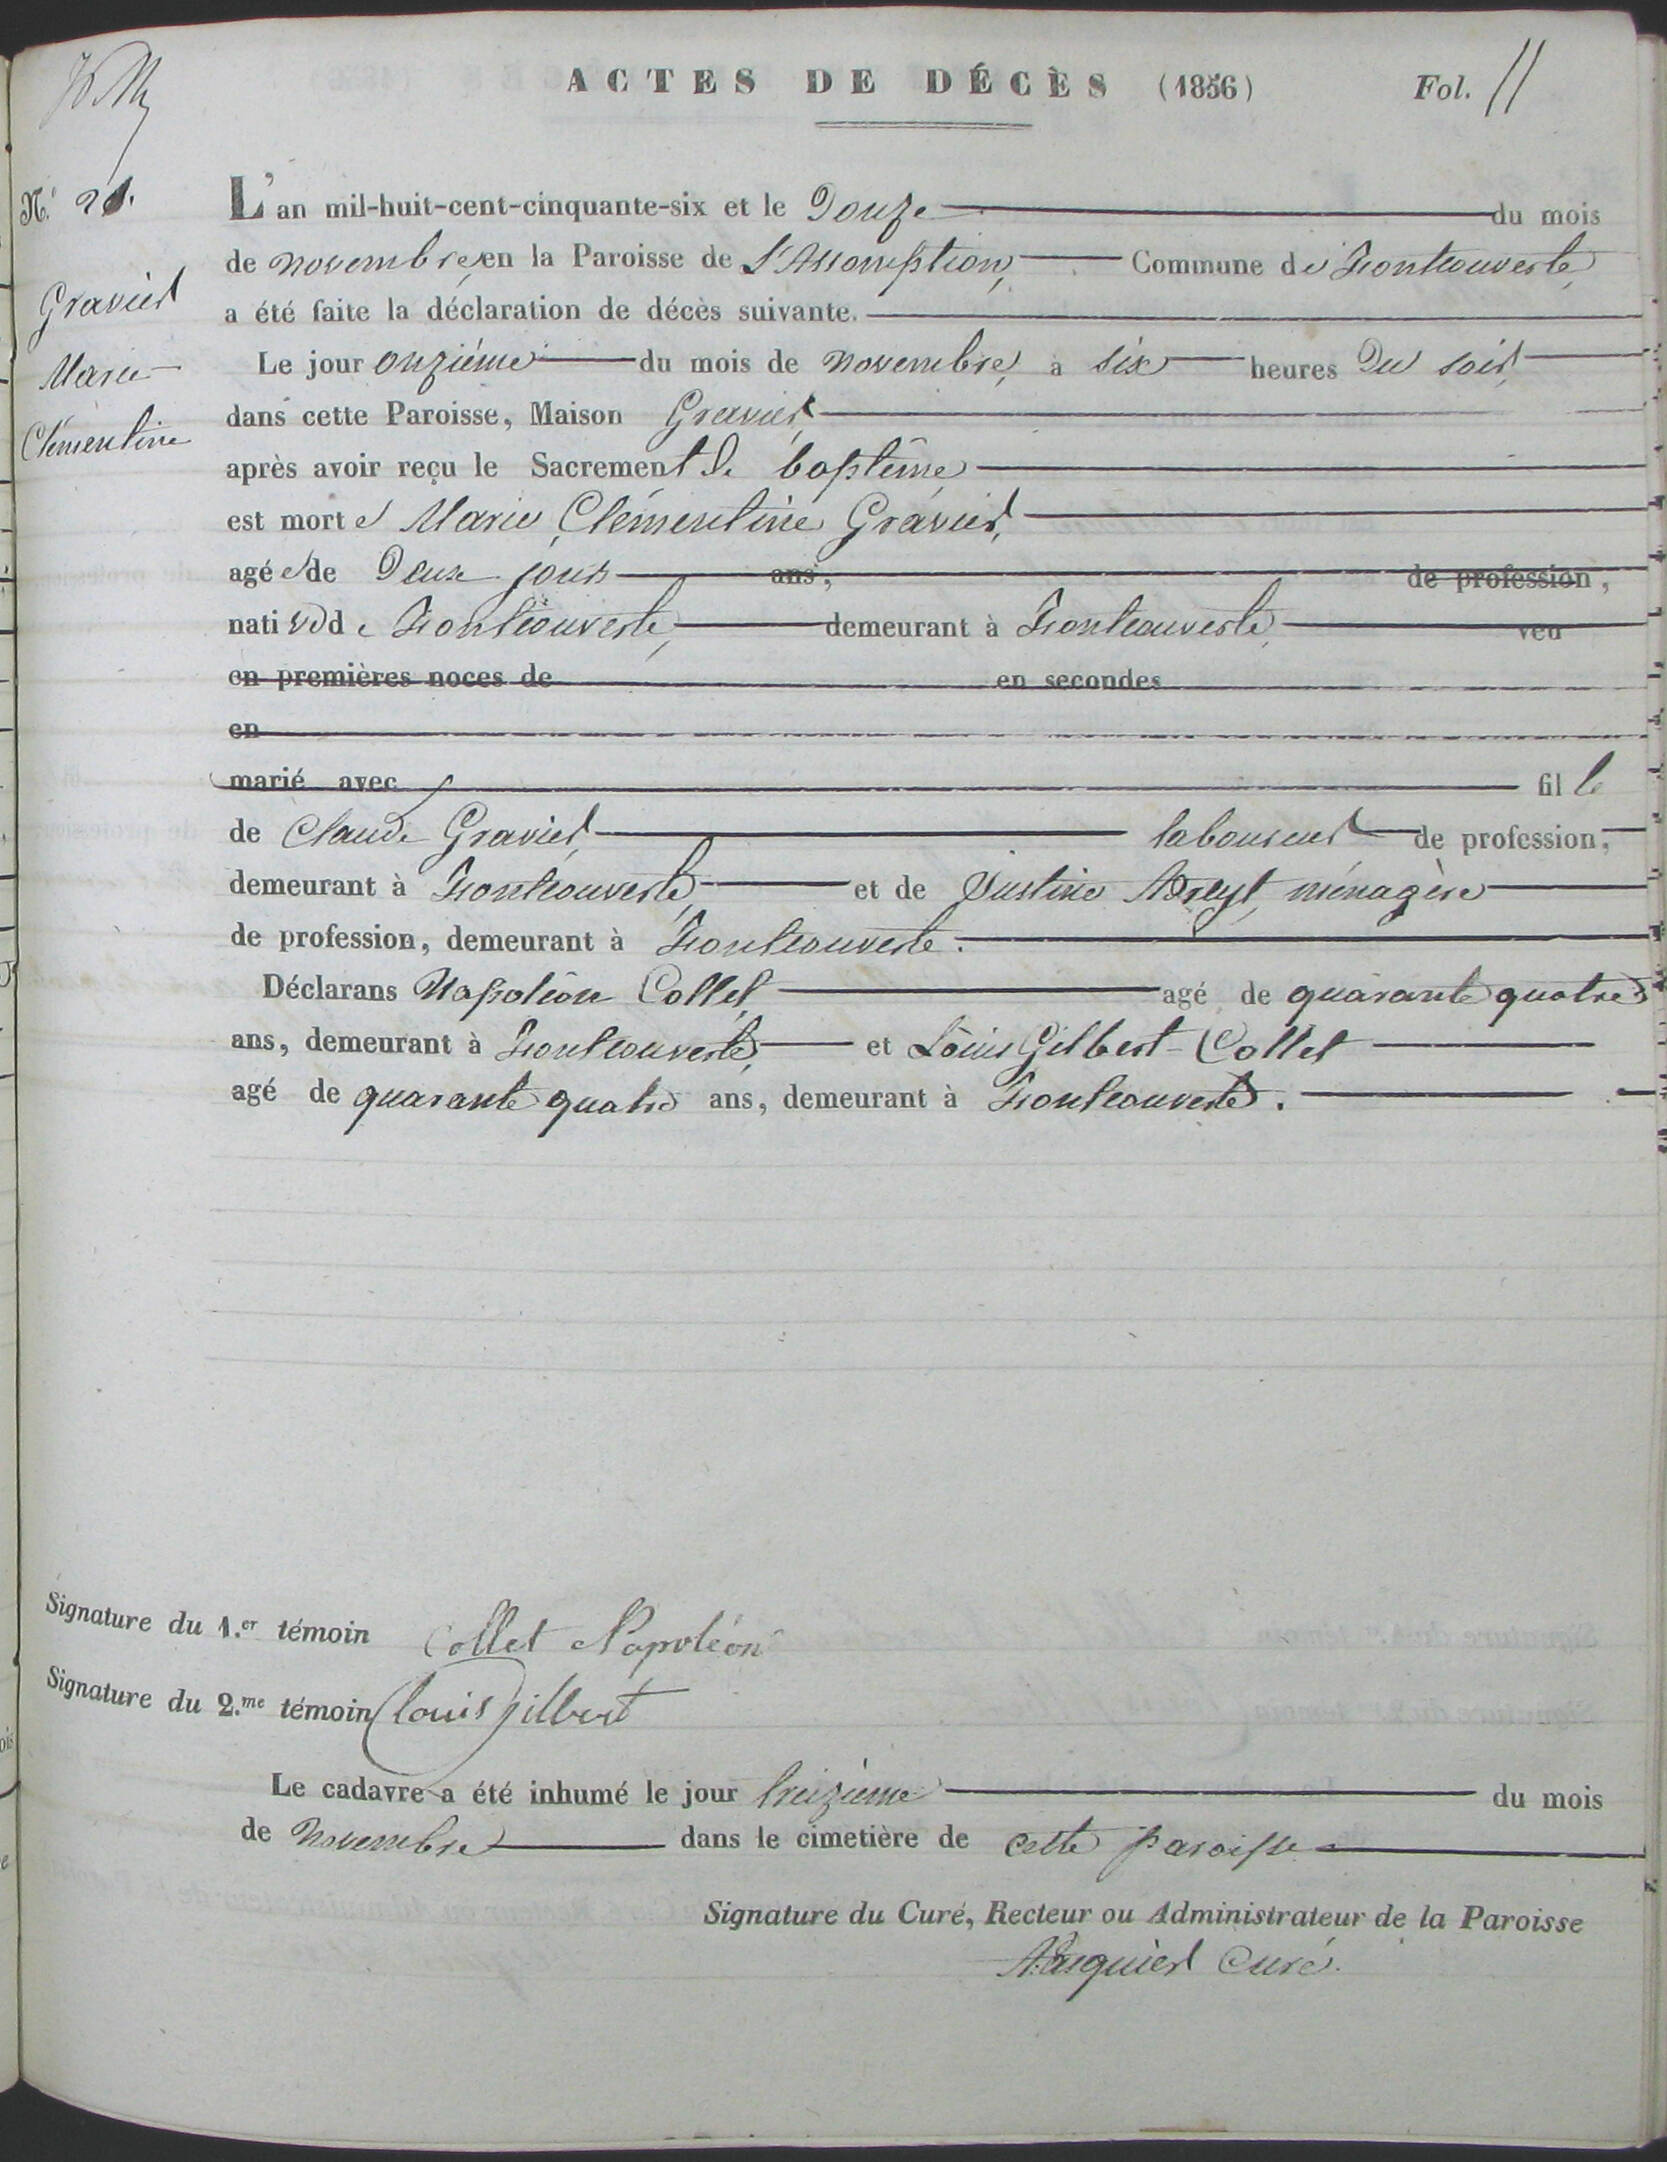 ACTES DE DÉCÈS (1856) Fol. 11
N.º 21.
Gravier
Marie
Clémentine
L'an mil-huit-cent-cinquante-six et le Douze du mois
de novembre, en la Paroisse de L'Assomption, Commune de Fontcouverte,
a été faite la déclaration de décès suivante.
Le jour onzième du mois de novembre, à six heures Du soir,
dans cette Paroisse, Maison Gravier,
après avoir reçu le Sacrement de baptême
est morte Marie Clémentine Gravier,
agée de Deux jours ans, de profession,
native de Fontcouverte, demeurant à Fontcouverte, veu
en premières noces de en secondes
en
marié avec fille
de Claude Gravier, laboureur de profession,
demeurant à Fontcouverte, et de Justine Adreyt, ménagère
de profession, demeurant à Fontcouverte.
Déclarans Napoléon Collet, agé de quarante quatre
ans, demeurant à Fontcouverte, et Louis Gilbert Collet
agé de quarante quatre ans, demeurant à Fontcouverte.
Signature du 1.er témoin Collet Napoléon
Signature du 2.me témoin Louis Gilbert
Le cadavre a été inhumé le jour treizième du mois
de Novembre dans le cimetière de cette paroisse
Signature du Curé, Recteur ou Administrateur de la Paroisse
Curé.